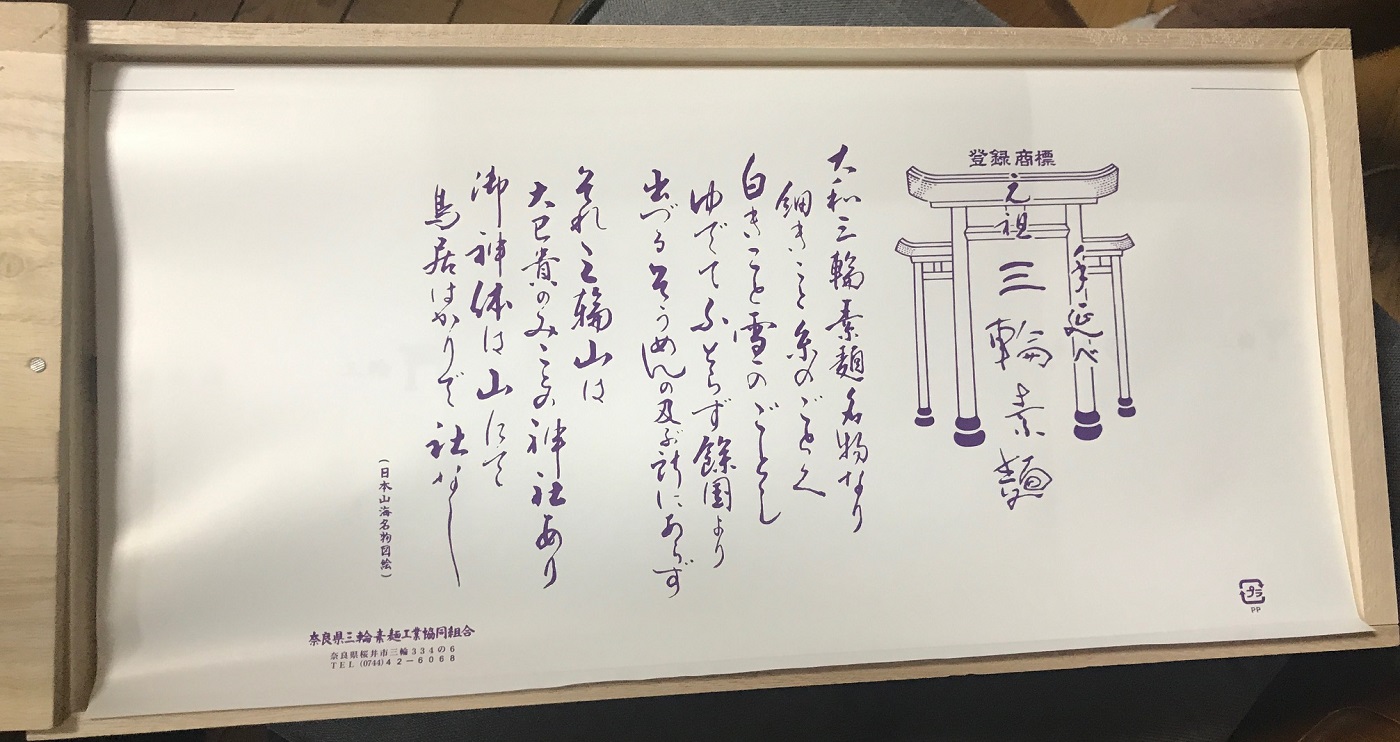 登録商標
元祖
三輪素麺
手延べ
大和三輪素麺名物なり
細きこと糸のごとく
白きこと雪のごとし
ゆでてふとらず餘國より
出づるそうめんの及ぶ所にあらず
それ三輪山は
大己貴のみことの神社あり
御神体は山にて
鳥居はかりで社なし
(日本山海名物図絵)
奈良県三輪素麺工業協同組合
奈良県桜井市三輪334の6
TEL (0744)42-6068
プラ
PP